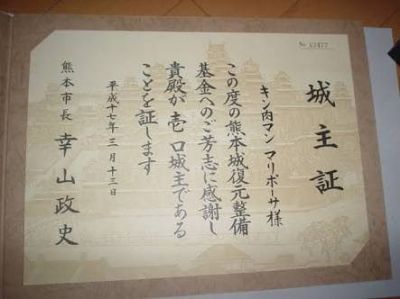 城主証
キン肉マン マリポーサ様
この度の熊本城復元整備
基金へのご芳志に感謝し
貴殿が壱口城主である
ことを証します
平成十七年三月十三日
熊本市長 幸山政史